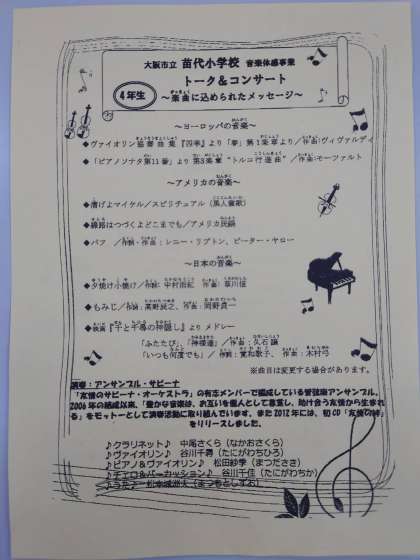 大阪市立 苗代小学校 音楽体感事業
トーク＆コンサート
4年生
～楽曲に込められたメッセージ～
～ヨーロッパの音楽～
◆ヴァイオリン協奏曲集『四季』より「春」第1楽章より／作曲：ヴィヴァルディ
◆「ピアノソナタ第11番」より第3楽章“トルコ行進曲”／作曲：モーツァルト
～アメリカの音楽～
◆漕げよマイケル／スピリチュアル（黒人霊歌）
◆線路はつづくよどこまでも／アメリカ民謡
◆パフ ／作詞・作曲：レニー・リプトン、ピーター・ヤロー
～日本の音楽～
◆夕焼け小焼け／作詞：中村雨紅 作曲：草川信
◆もみじ／作詞：高野辰之、作曲：岡野貞一
◆映画『千と千尋の神隠し』より メドレー
「ふたたび」、「神様達」／ 作曲：久石譲
「いつも何度でも」／ 作詞：覚和歌子、 作曲：木村弓
※曲目は変更する場合があります。
演奏：アンサンブル・サビーナ
「友情のサビーナ・オーケストラ」の有志メンバーで編成している管弦楽アンサンブル。
2006年の結成以来、「豊かな音楽は、お互いを個人として尊重し、助け合う友情から生まれ
る」をモットーとして演奏活動に取り組んでいます。また2012年には、初CD「友情の絆」
をリリースしました。
♪クラリネット♪ 中尾さくら（なかおさくら）
♪ヴァイオリン♪ 谷川千尋（たにがわちひろ）
♪ピアノ＆ヴァイオリン♪ 松田紗季（まつださき）
♪チェロ＆パーカッション♪ 谷川千佳（たにがわちか）